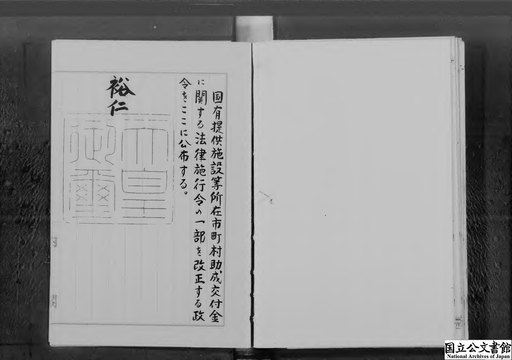 国有提供施設等所在市町村助成交付金
に関する法律施行令の一部を改正する政
令をここに公布する。
裕仁
天皇
御璽
国立公文書館
National Archives of Japan